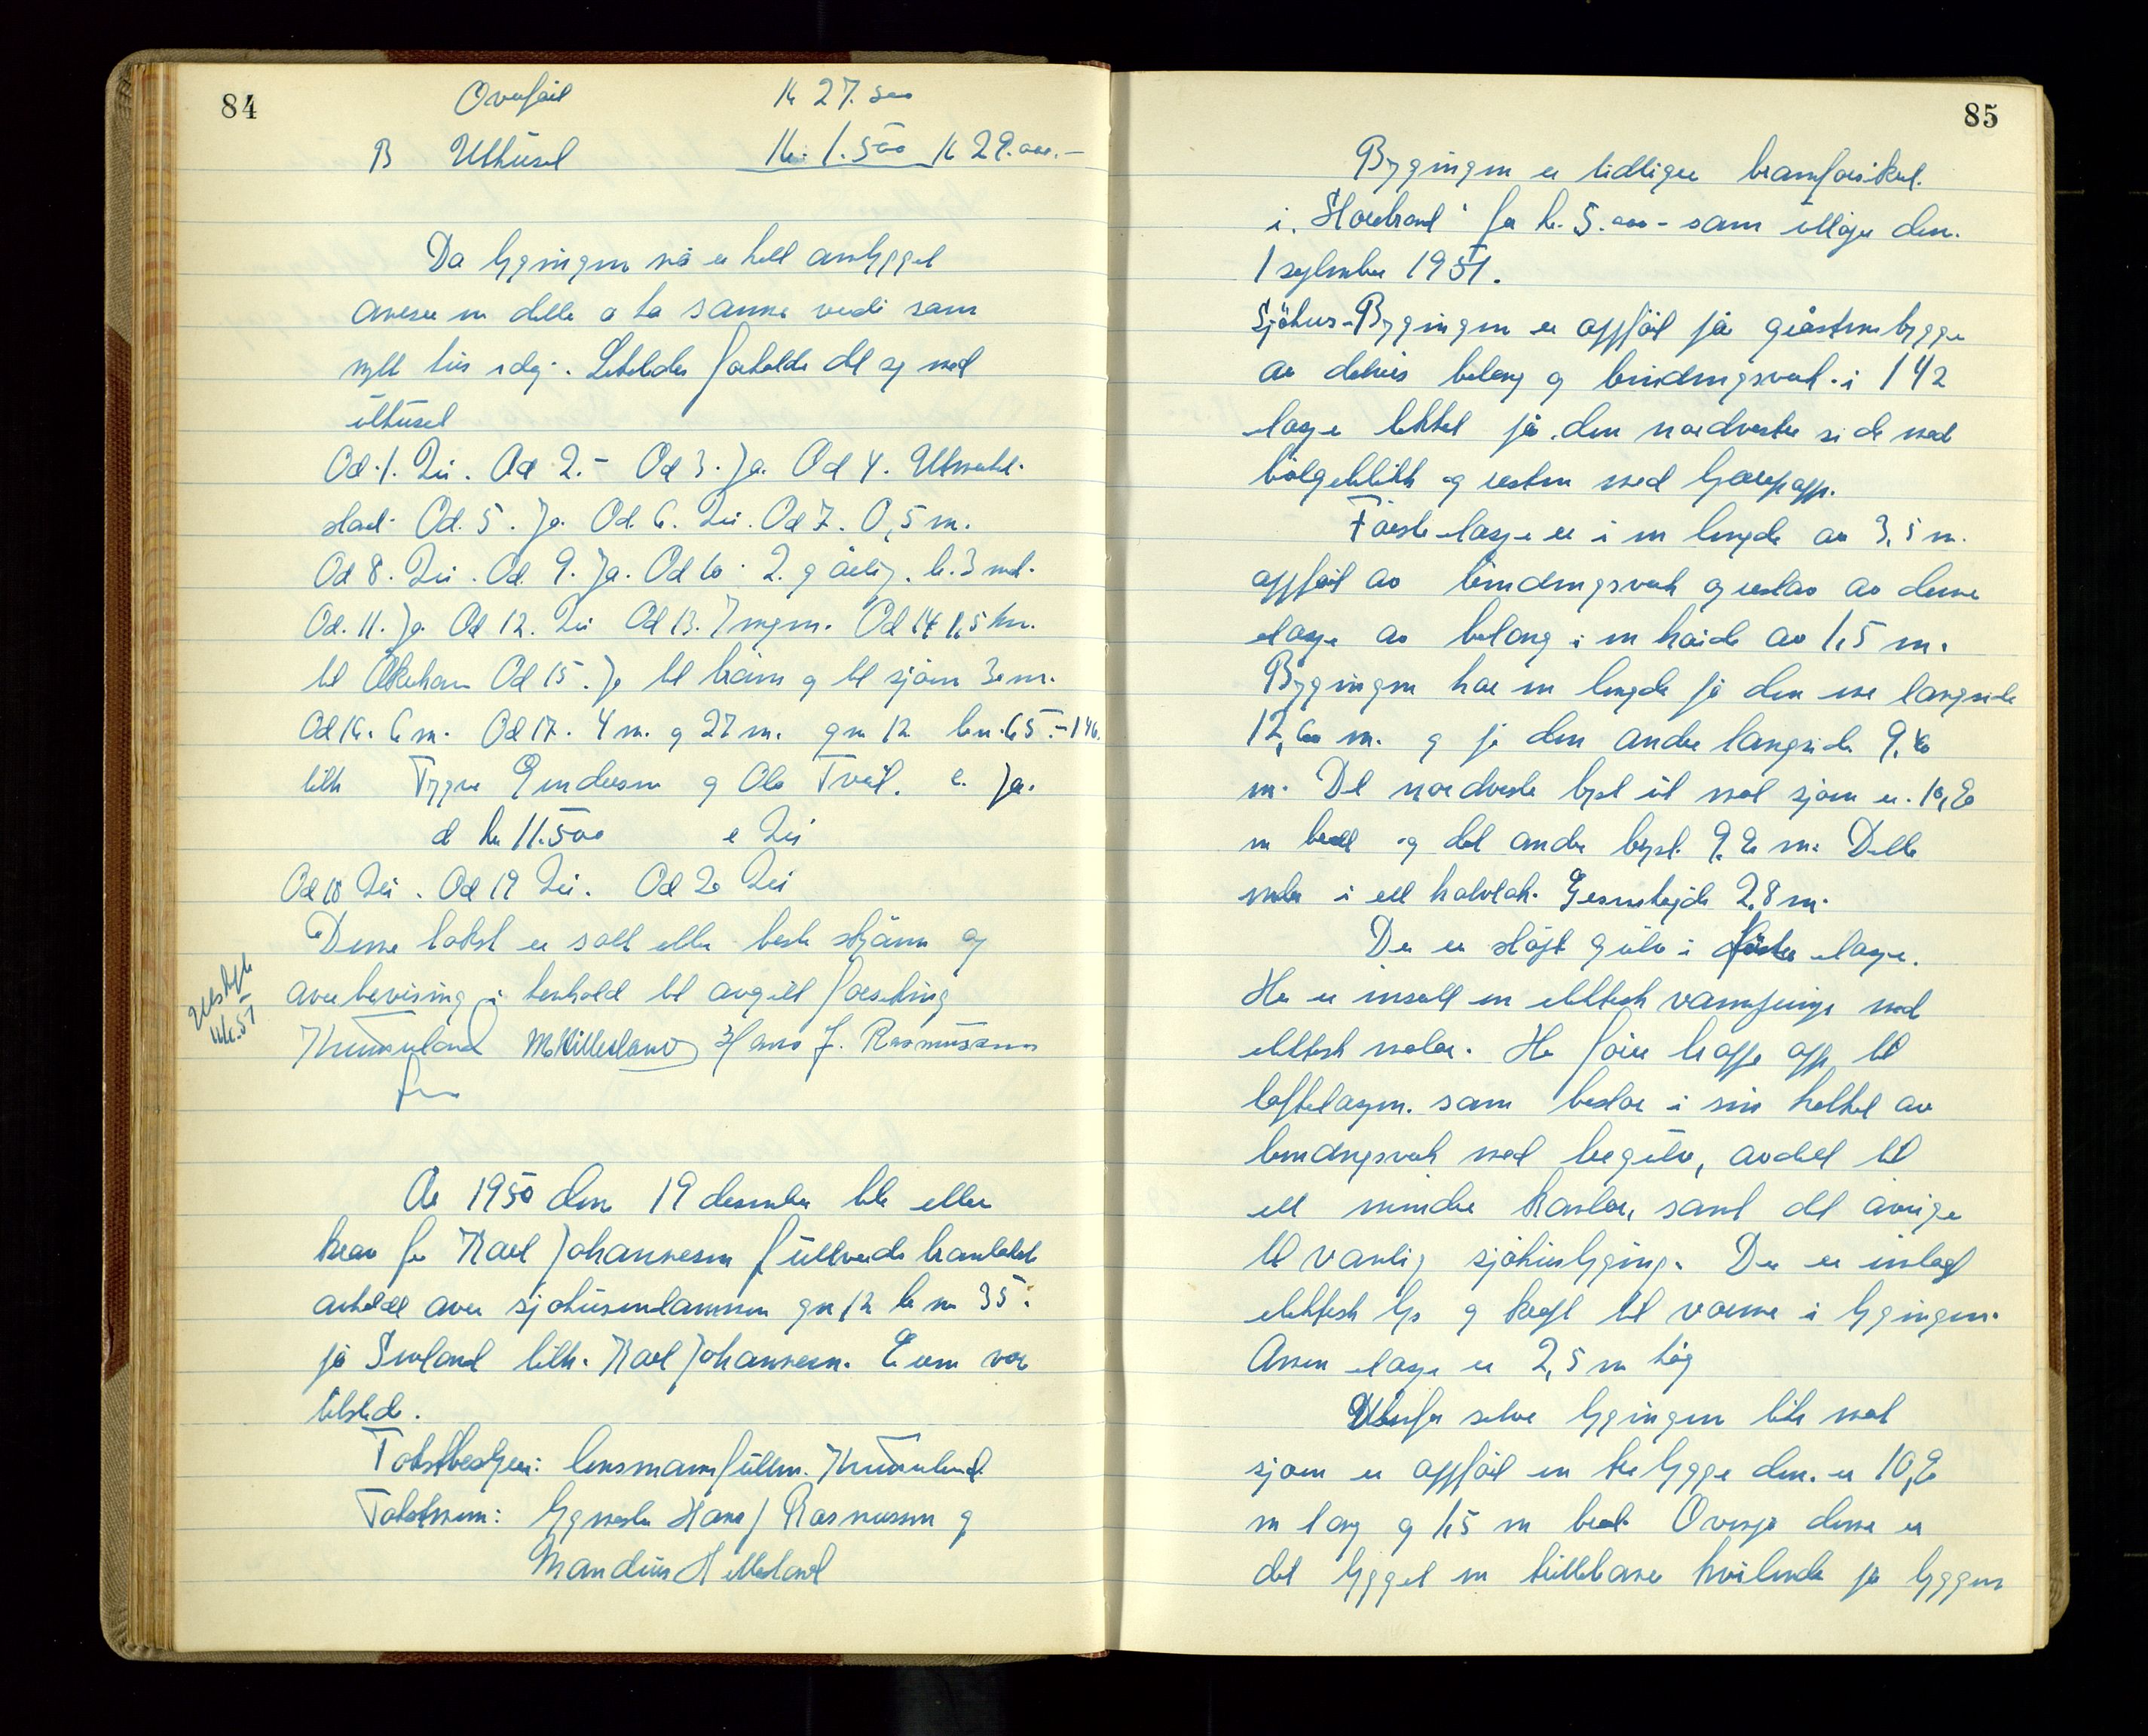 84
Overført kr 27.500
B Uthuset kr. 1.500 kr 29.000.-
Da bygningen nå er helt ombygget
anser en dette å ha samme verdi som
nytt hus idag. Likeledes forholder det seg med
uthuset
Ad. 1. Nei. Ad 2. - Ad 3. Ja. Ad 4. Utmerket
stand. Ad. 5. Ja. Ad. 6. Nei. Ad 7. 0,5 m.
Ad 8. Nei. Ad. 9. Ja. Ad 10. 2. g årlig. 3 md.
Ad. 11. Ja Ad 12. Nei Ad 13. Ingen. Ad 14 1,5 km.
til Åkrehamn Ad 15. Ja til brønn og til sjøen 30 m.
Ad 16. 6 m. Ad 17. 4 m. og 27 m. gn 12 bn. 65.-146.
tilh Trygve Endresen og Ola Tveit. c. Ja.
d kr 11.500 e Nei
Ad 18 Nei. Ad 19 Nei. Ad 20 Nei
Denne takst er satt etter beste skjønn og
overbevisning i henhold til avgitt forsikring
M. Hillesland Hans J. Rasmussen
Utskrift
År 1950 den 19 desember ble etter
krav fra Karl Johannesen fullverdi branntakst
avholdt over sjøhuseiendommen gn 12 bn 35.
på Sevland tilh. Karl Johannesen. Eieren var
tilstede.
Takstbestyrer: lensmannsfullm.
Takstmenn: byggmester Hans J Rasmussen og
Mandius Hillesland
85
Bygningen er tidligere brannforsikret.
i "Storebrand" for kr. 5.000 - som utløper den.
1 september 1951.
Sjøhus-Bygningen er oppført på gråstensbrygge
av delvis betong og bindingsverk. i 1 1/2
etasje tekket på den nordvestre side med
bølgeblikk og resten med
Første etasje er i en lengde av 3,5 m.
oppført av bindingsverk og resten av denne
etasje av betong i en høide av 1,5 m.
Bygningen har en lengde på den ene langside
12,60 m. og på den andre langside 9,40
m. Det nordvestre bygg ut mot sjøen er. 10,20
m bredt og det andre bygg. 9,20 m. Dette
i ett halvtak. Gesimshøjde 2,8 m.
Der er støpt gulv i første etasje.
Her er innsatt en elektrisk vannpumpe med
elektrisk motor. Her fører trapp opp til
loftetasjen. som består i sin helhet av
bindingsverk med tregulv, avdelt til
ett mindre kontor, samt det øvrige
til vanlig sjøhusbygning. Der er innlagt
elektrisk lys og kraft til varme i bygningen.
Annen etasje er 2,5 m høg
Utenfor selve bygningen like mot
sjøen er oppført en trebrygge den. er 10,20
m lang og 1,5 m bred. Ovenpå denne er
det bygget en hvilende på bryggen